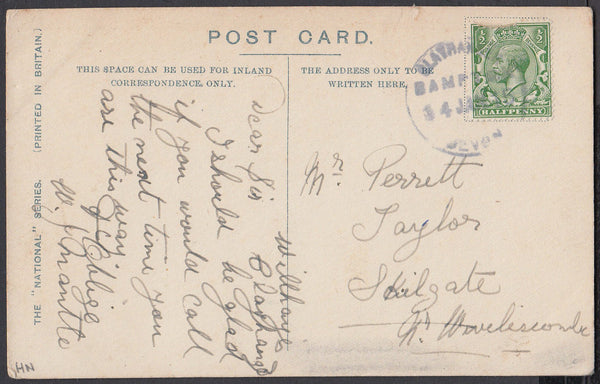 POST CARD.
THIS SPACE CAN BE USED FOR INLAND
CORRESPONDENCE ONLY.
THE ADDRESS ONLY TO BE
WRITTEN HERE.
THE "NATIONAL" SERIES. (PRINTED IN BRITAIN.)
Dear Sir
I should be glad
if you would call
the next time you
are this way
Oblige
W. J. Mantle
Mr Perrett
Taylor
Skilgate
Nr Wiveliscombe
½ ½
HALFPENNY
BAMP
4 JA
DEVON
HN